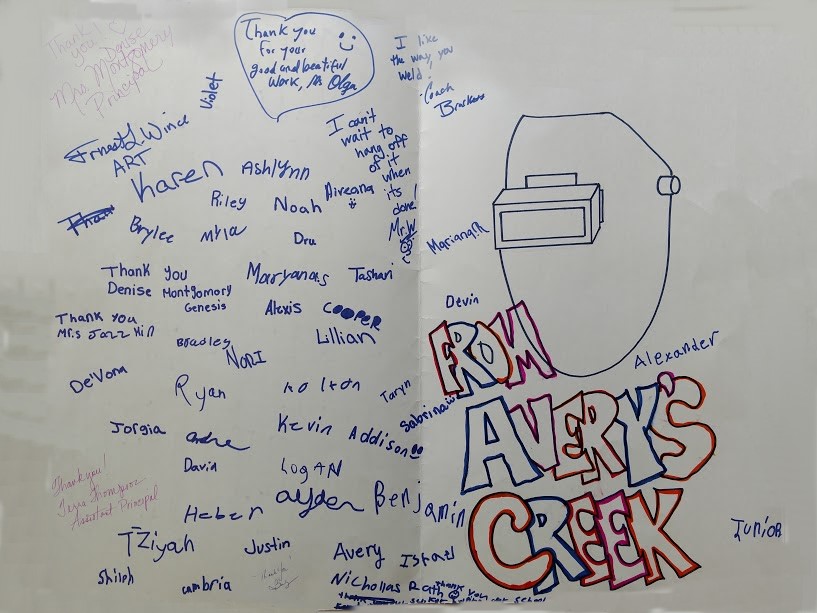 Thank
you!
Denise
Mrs. Montgomery
Principal
Violet
Thank you
for your
good and beautiful
work, Ms Olga
I like
the way you
weld!
-Coach
Ernest L Wince
ART
Karen
Ashlynn
I can't
wait to
hang off
of it
when
its
done!
Mr. W
Riley
Noah
Aireana
Brylee
Myla
Dru
Mariana.R
Thank you
Denise Montgomory
Genesis
Maryanais
Tashari
Alexis
COOPER
Devin
Thank you
Mrs Jazz Hill
Bradley
Lillian
Nori
FROM
Alexander
De'Vona
Ryan
Kolton
Taryn
Sabrina
AVERY'S
Jorgia
Andre
Kevin
Addison
David
LOGAN
Thank you!
Assistant Principal
Heber
Ayden
Benjamin
CREEK
Junior
T'Ziyah
Justin
Avery
Israel
Shiloh
cambria
Nichollas
Rath
thank you